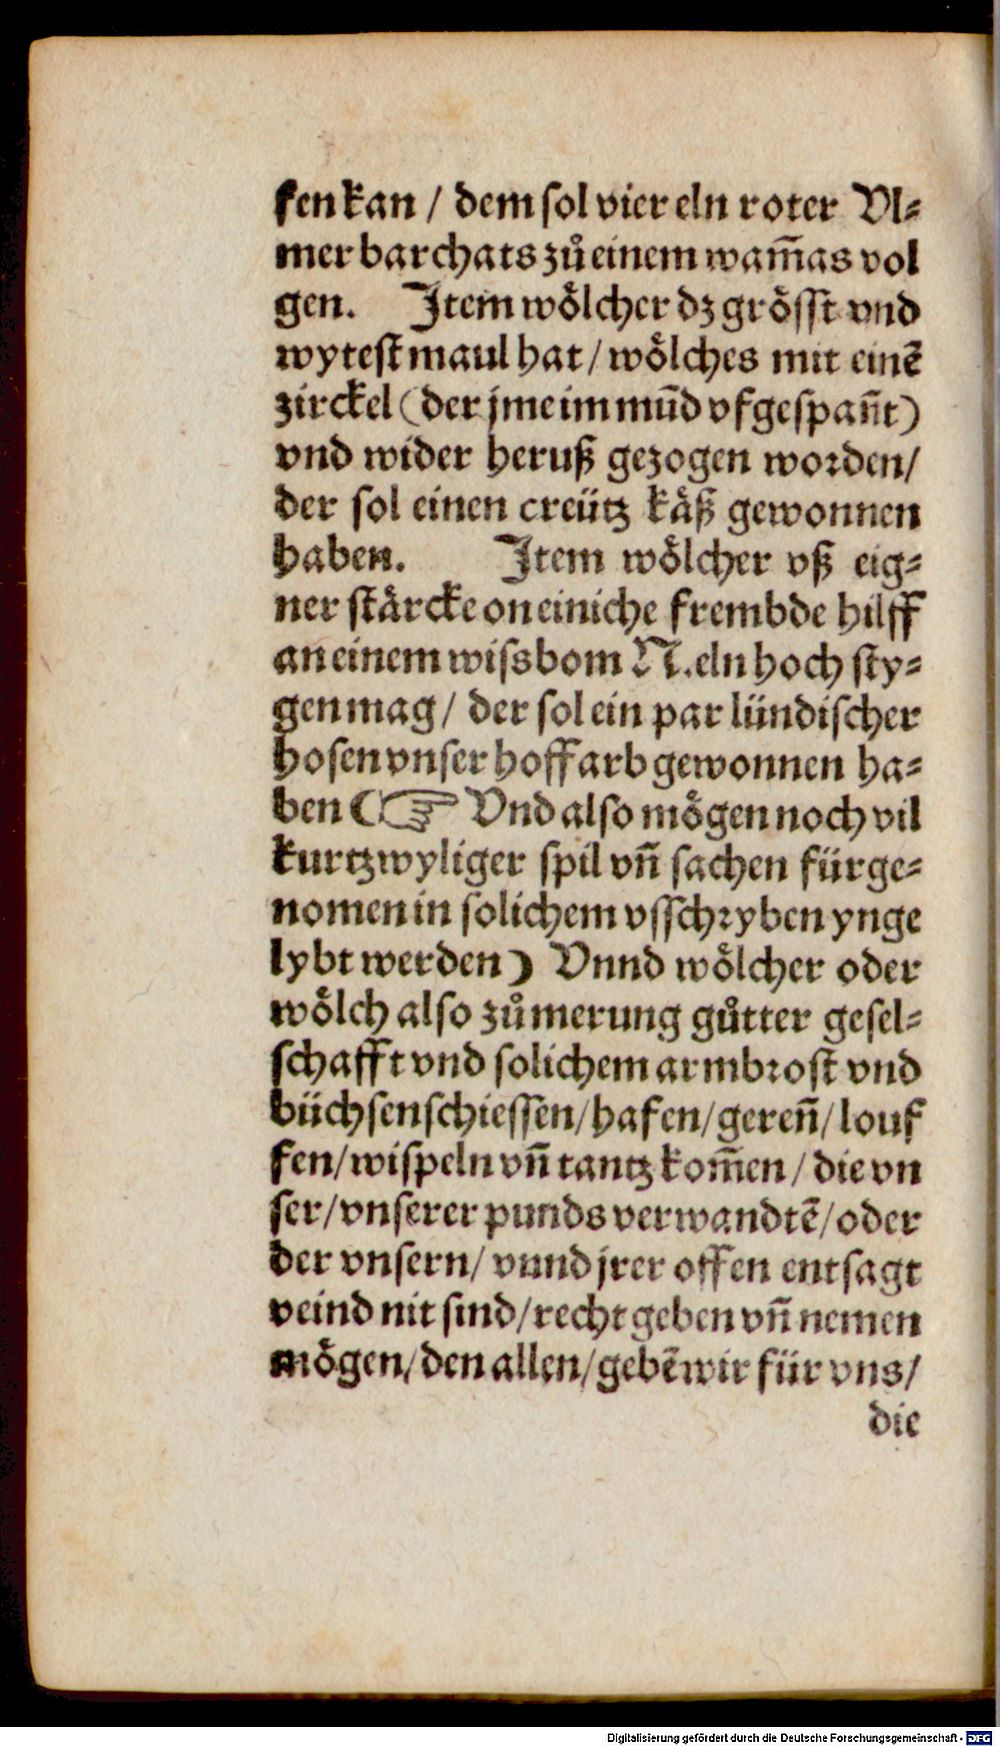 fen kan / dem sol vier eln roter Vl⸗
mer barchats zů einem wam̃as vol
gen. Item woͤlcher dz groͤsst vnd
wytest maul hat / woͤlches mit einẽ
zirckel (der jme im mũd vfgespañt)
vnd wider heruß gezogen worden /
der sol einen creütz kaͤß gewonnen
haben. Item woͤlcher vß eig⸗
ner staͤrcke on einiche frembde hilff
an einem wissbom N. eln hoch sty⸗
gen mag / der sol ein par lündischer
hosen vnser hoffarb gewonnen ha⸗
ben (☞ Vnd also moͤgen noch vil
kurtzwyliger spil vñ sachen fürge⸗
nomen in solichem vsschryben ynge
lybt werden) Vnnd woͤlcher oder
woͤlch also zů merung gůtter gesel⸗
schafft vnd solichem armbrost vnd
büchsenschiessen / hafen / gereñ / louf
fen / wispeln vñ tantz kom̃en / die vn
ser / vnserer punds verwandtẽ / oder
der vnsern / vnnd jrer offen entsagt
veind nit sind / recht geben vñ nemen
moͤgen / den allen / gebẽ wir für vns /
die
Digitalisierung gefördert durch die Deutsche Forschungsgemeinschaft - DFG